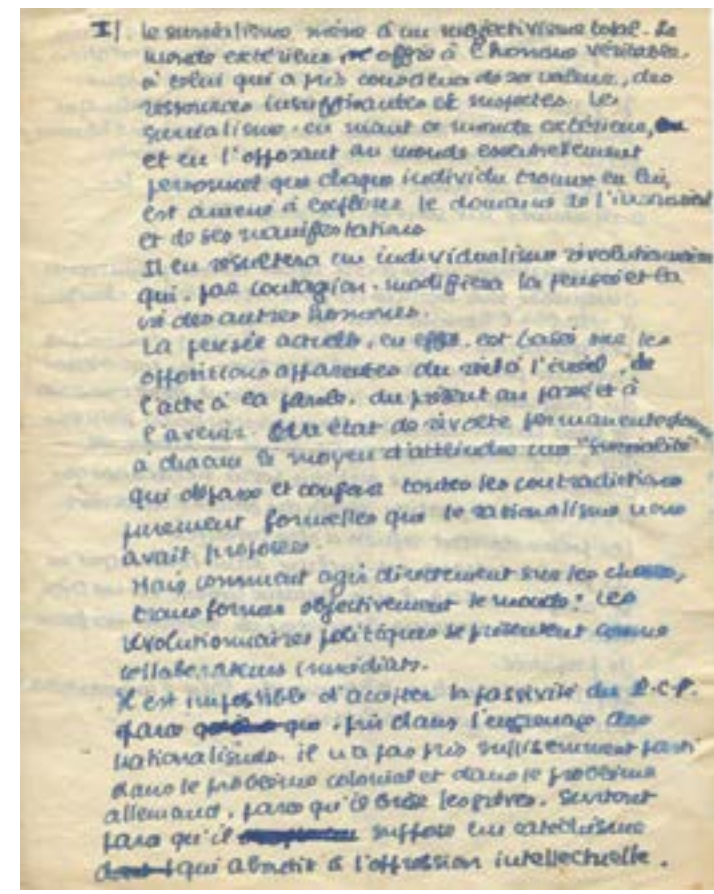 I/ Le surréalisme mène à un subjectivisme total. Le
monde extérieur offre à l'homme véritable,
à celui qui a pris conscience de sa valeur, des
ressources insuffisantes et suspectes. Le
surréalisme en niant ce monde extérieur,
et en l'opposant au monde essentiellement
personnel que chaque individu trouve en lui,
est amené à explorer le domaine de l'inconscient
et de ses manifestations
Il en résultera un individualisme révolutionnaire
qui, par contagion, modifiera la pensée et la
vie des autres hommes.
La pensée actuelle, en effet, est basée sur les
oppositions apparentes du réel à l'irréel, de
l'acte à la parole, du présent au passé et à
l'avenir. état de révolte permanente donne
à chacun le moyen d'atteindre une "surréalité"
qui dépasse et confond toutes les contradictions
purement formelles que le rationalisme nous
avait proposées.
Mais comment agir directement sur les choses,
transformer objectivement le monde : les
révolutionnaires politiques se présentent comme
collaborateurs immédiats.
Il est impossible d'accepter la passivité du P.C.F.
parce que, pris dans l'engrenage des
nationalismes, il n'a pas pris suffisamment parti
dans le problème colonial et dans le problème
allemand, parce qu'il brise les grèves. Surtout
parce qu'il suppose un catéchisme
qui aboutit à l'oppression intellectuelle.